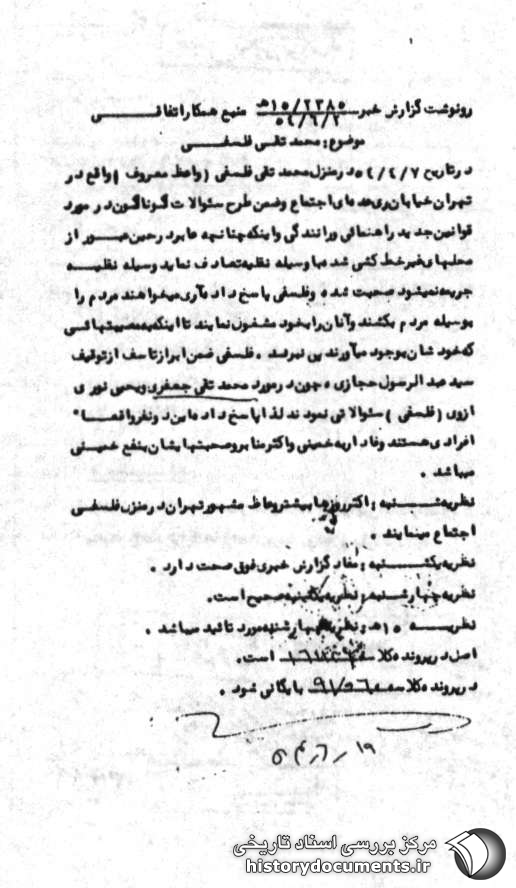 رونوشت گزارش خبر ۱۵/۲۳۸۵ ه‍ منبع همکار اتفاقی
۵۴/۶/۲
موضوع : محمد تقی فلسفی
در تاریخ ۵۴/۴/۷ در منزل محمد تقی فلسفی ( واعظ معروف ) واقع در
تهران خیابان ری عده ای اجتماع وضمن طرح سئوالات گوناگون در مورد
قوانین جدید راهنمائی ورانندگی واینکه چنانچه عابر در حین عبور از
محلهای غیر خط کشی شده با وسیله نقلیه تصادف نماید وسیله نقلیه
جریمه نمیشود صحبت شد . وفلسفی پاسخ داد . آری میخواهند مردم را
بوسیله مردم بکشند وآنان را بخود مشغول نمایند تا اینکه به مصیبتهائی
که خودشان بوجود میآورند پی نبرند . فلسفی ضمن ابراز تاسف از توقیف
سید عبدالرسول حجازی ه چون در مورد محمد تقی جعفری ویحیی نوری
از وی ( فلسفی ) سئوالاتی نمودند لذا پاسخ داده این دو نفر واقعا"
افرادی هستند وفادار به خمینی واکثر منابر وصحبتهایشان بنفع خمینی
میباشد .
نظریه شنبه : اکثر روزها بیشتر وعاظ مشهور تهران در منزل فلسفی
اجتماع مینمایند .
نظریه یکشنبه : مفاد گزارش خبری فوق صحت دارد .
نظریه چهارشنبه : نظریه یکشنبه صحیح است.
نظریه ۱۵ ه‍ : نظریه چهارشنبه مورد تائید میباشد .
اصل در پرونده کلاسه است.
در پرونده کلاسه بایگانی شود .
۱۹ / ۶ / ۵۴
مرکز بررسی اسناد تاریخی
historydocuments.ir